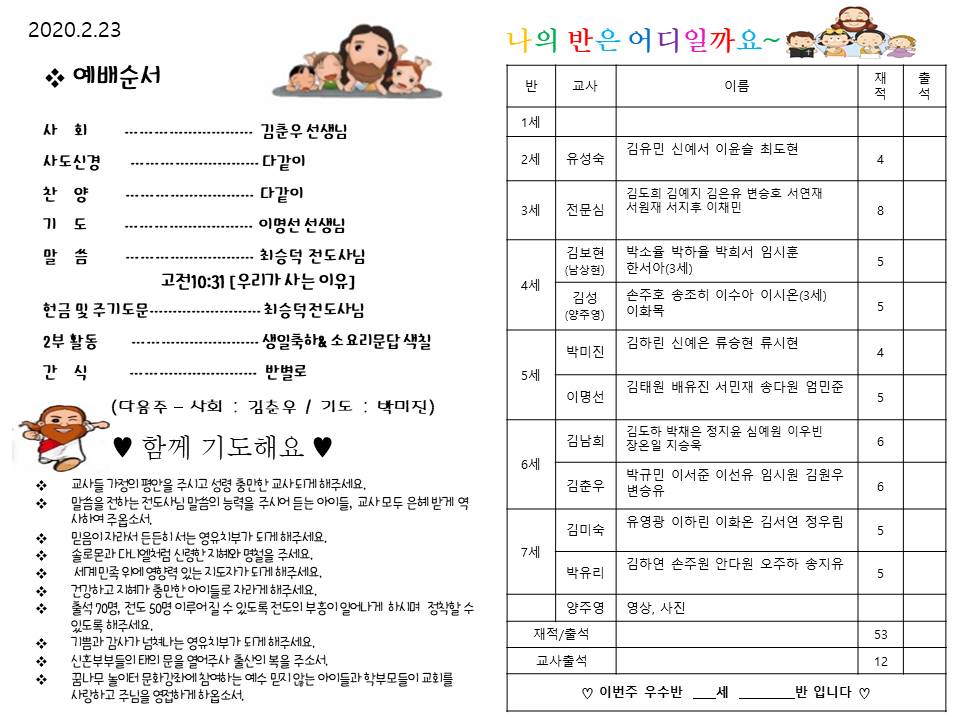 2020.2.23
❖ 예배순서
사 회 --------------------------- 김춘우 선생님
사도신경 --------------------------- 다같이
찬 양 --------------------------- 다같이
기 도 --------------------------- 이명선 선생님
말 씀 --------------------------- 최승덕 전도사님
고전10:31 [우리가 사는 이유]
헌금 및 주기도문------------------------ 최승덕전도사님
2부 활동 --------------------------- 생일축하& 소요리문답 색칠
간 식 --------------------------- 반별로
(다음주 – 사회 : 김춘우 / 기도 : 박미진)
♥ 함께 기도해요 ♥
❖ 교사들 가정의 평안을 주시고 성령 충만한 교사되게 해주세요.
❖ 말씀을 전하는 전도사님 말씀의 능력을 주시어 듣는 아이들, 교사 모두 은혜 받게 역
사하여 주옵소서.
❖ 믿음이 자라서 든든히 서는 영유치부가 되게 해주세요.
❖ 솔로몬과 다니엘처럼 신령한 지혜와 명철을 주세요.
❖ 세계 민족 위에 영향력 있는 지도자가 되게 해주세요.
❖ 건강하고 지혜가 충만한 아이들로 자라게 해주세요.
❖ 출석 70명, 전도 50명 이루어 질 수 있도록 전도의 부흥이 일어나게 하시며 정착할 수
있도록 해주세요.
❖ 기쁨과 감사가 넘쳐나는 영유치부가 되게 해주세요.
❖ 신혼부부들의 태의 문을 열어주사 출산의 복을 주소서.
❖ 꿈나무 놀이터 문화강좌에 참여하는 예수 믿지 않는 아이들과 학부모들이 교회를
사랑하고 주님을 영접하게 하옵소서.
나의 반은 어디일까요~
반 교사 이름 재적 출석
1세
2세 유성숙 김유민 신예서 이윤슬 최도현 4
3세 전문심 김도희 김예지 김은유 변승호 서연재
서원재 서지후 이채민 8
4세 김보현 (남상현) 박소율 박하율 박희서 임시훈
한서아(3세) 5
김성 (양주영) 손주호 송조히 이수아 이시온(3세)
이화목 5
5세 박미진 김하린 신예은 류승현 류시현 4
이명선 김태원 배유진 서민재 송다원 엄민준 5
6세 김남희 김도하 박채은 정지윤 심예원 이우빈
장온일 지승욱 6
김춘우 박규민 이서준 이선유 임시원 김원우
변승유 6
7세 김미숙 유영광 이하린 이화온 김서연 정우림 5
박유리 김하연 손주원 안다원 오주하 송지유 5
양주영 영상, 사진
재적/출석 53
교사출석 12
♡ 이번주 우수반 ___세 ________반 입니다 ♡